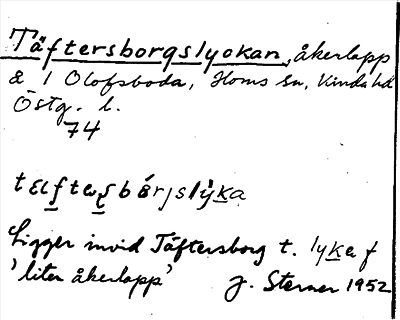 Täftersborgslyckan, åkerlapp
å 1 Olofsboda, Horns sn, Kinda hd
Östg. l.
74
Ligger invid Täftersborg t. lyka f
'liten åkerlapp' J. Sterner 1952